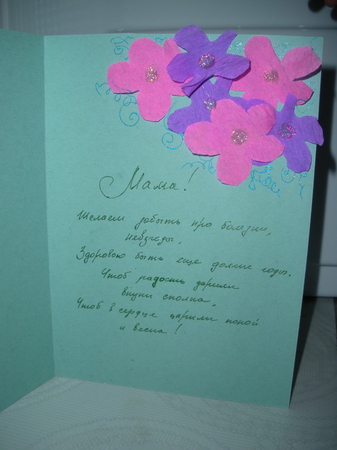 Мама!
Желаем забыть про болезни,
невзгоды,
Здоровою быть еще долгие годы.
Чтоб радость дарили
внуки сполна,
Чтоб в сердце царили покой
и весна!